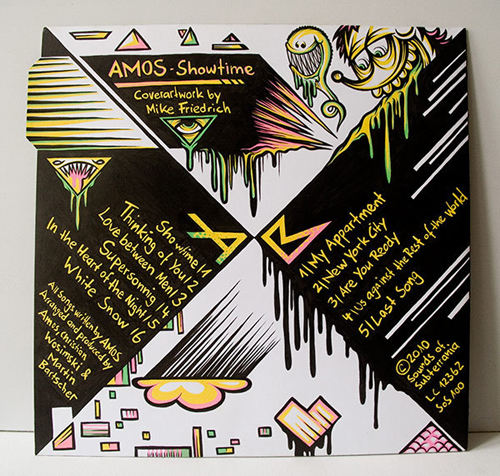 AMOS - Showtime
Coverartwork by
Mike Friedrich
A
Showtime/1
Thinking of You/2
Love between Men/3
Supersonnig/4
In the Heart of the Night/5
White Snow/6
All Songs written by AMOS
Arranged and produced by
Amos, Christian
Wosimski &
Martin
Bartscher
B
1) My Appartment
2) New York City
3) Are You Ready
4) Us against the Rest of the World
5) Last Song
©2010
Sounds of
Subterrania
LC 12362
SoS/00